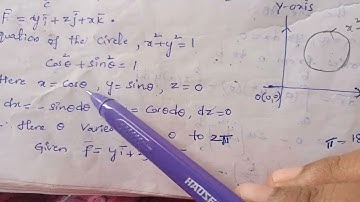 c
F̄ = yī + zj̄ + xk̄.
quation of the circle, x² + y² = 1
cos²θ + sin²θ = 1
Here x = cosθ, y = sinθ, z = 0
dx = - sinθdθ = cosθdθ, dz = 0
∴ Here θ varies 0 to 2π
Given F̄ = yī +
Y-axis
x²
0(0,0)
π = 18
HAUSER